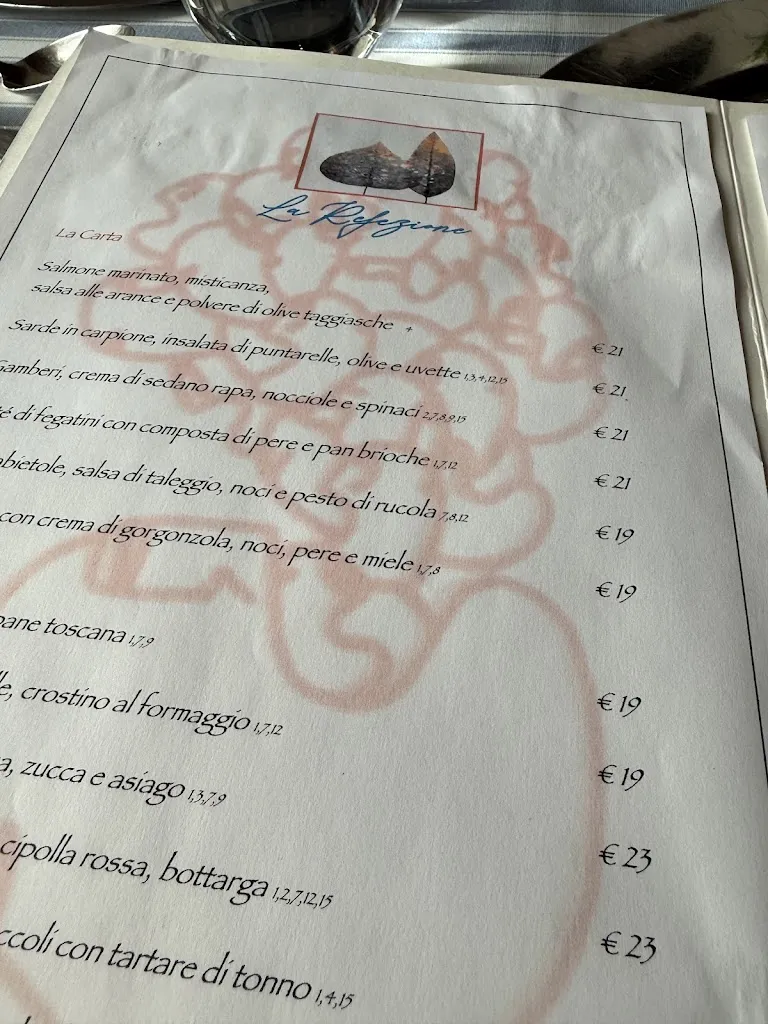 La Refezione
La Carta
Salmone marinato, misticanza,
salsa alle arance e polvere di olive taggiasche +
€ 21
Sarde in carpione, insalata di puntarelle, olive e uvette 1,3,4,12,15
€ 21
Gamberi, crema di sedano rapa, nocciole e spinaci 2,7,8,9,15
€ 21
di fegatini con composta di pere e pan brioche 1,7,12
€ 21
salsa di taleggio, noci e pesto di rucola 7,8,12
€ 19
con crema di gorgonzola, noci, pere e miele 1,7,8
€ 19
toscana 1,7,9
€ 19
crostino al formaggio 1,7,12
€ 19
zucca e asiago 1,3,7,9
€ 23
cipolla rossa, bottarga 1,2,7,12,15
€ 23
con tartare di tonno 1,4,15